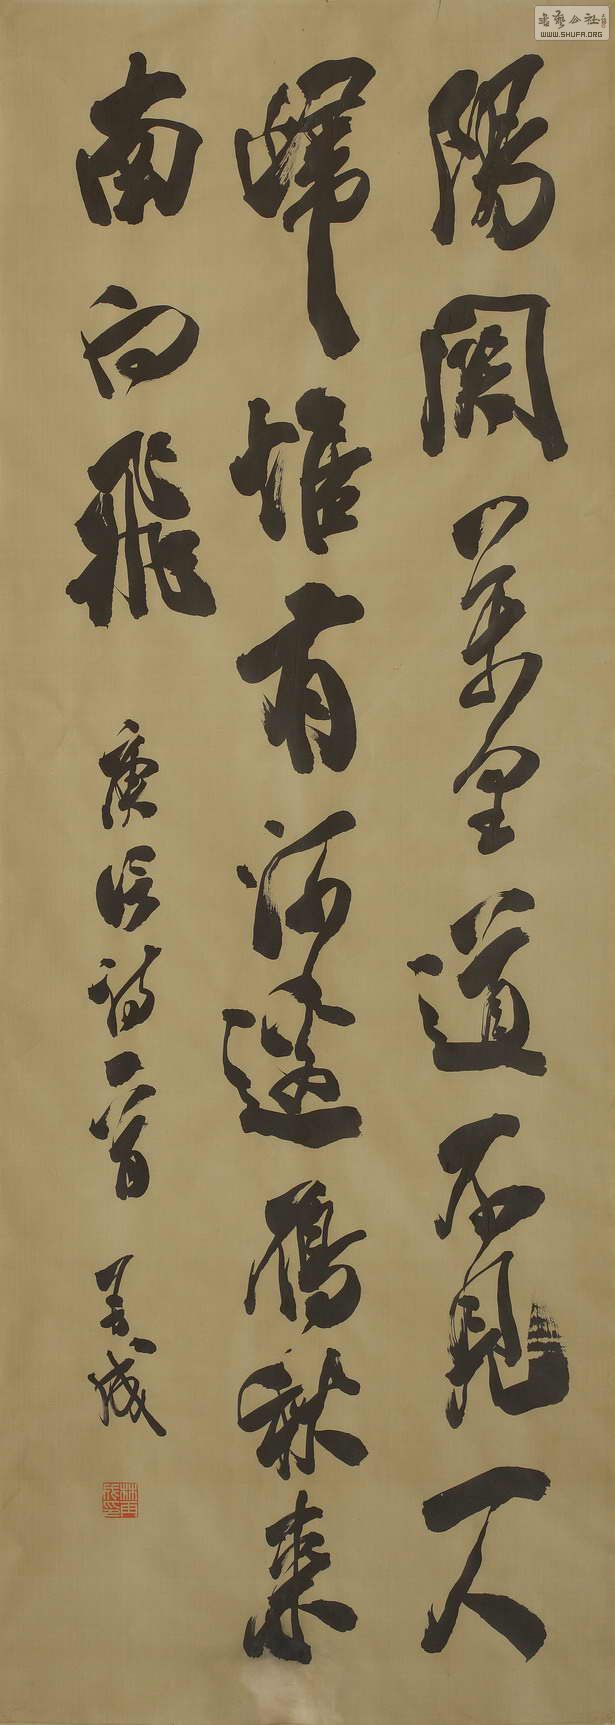 陽関萬里道不見人
歸惟有河邊鴈秋來
南向飛
庾信詩一首
書藝公社
WWW.SHUFA.ORG